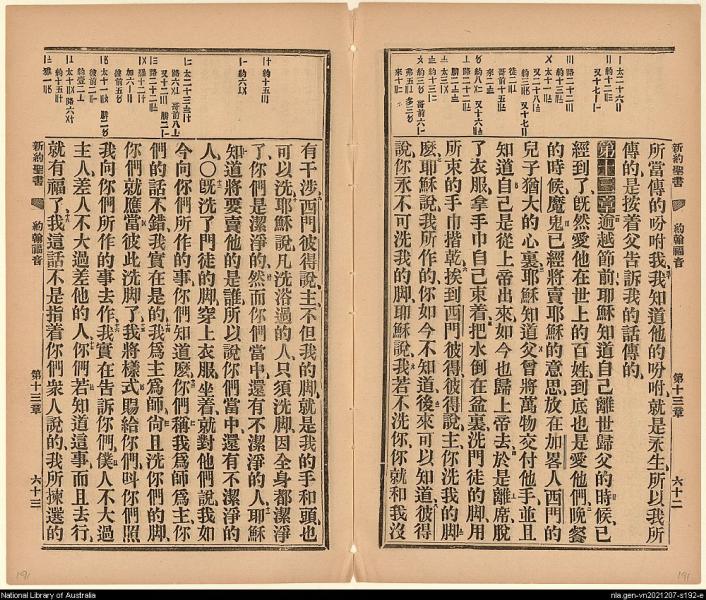 新約聖書
約翰福音
第十三章
六十二
所當傳的吩咐我、我知道他的吩咐、就是永生、所以我所
傳的、是按着父告訴我的話傳的、
第十三章逾越節前、耶穌知道自己離世歸父的時候、已
經到了、旣然愛他在世上的百姓、到底也是愛他們、晚餐
的時候、魔鬼已經將賣耶穌的意思、放在加畧人西門的
兒子猶大的心裏、耶穌知道父曾將萬物交付他手、並且
知道自己是從上帝出來、如今也歸上帝去、於是離席、脫
了衣服、拿手巾自己束着、把水倒在盆裏、洗門徒的脚、用
所束的手巾揩乾、挨到西門彼得、彼得說、主、你洗我的脚
麽、耶穌說、我所作的、你如今不知道、後來可以知道、彼得
說、你永不可洗我的脚、耶穌說、我若不洗你、你就和我沒
有干涉、西門彼得說、主、不但我的脚、就是我的手和頭、也
可以洗、耶穌說、凡洗浴過的人、只須洗脚、因全身都潔淨
了、你們是潔淨的、然而你們當中還有不潔淨的人、耶穌
知道將要賣他的是誰、所以說你們當中還有不潔淨的
人、〇旣洗了門徒的脚、穿上衣服、坐着、就對他們說、我如
今向你們所作的事、你們知道麽、你們稱我爲師、爲主、你
們的話不錯、我實在是的、我爲主爲師、尙且洗你們的脚、
你們就應當彼此洗脚了、我將樣式賜給你們、呌你們照
我向你們所作的事去作、我實在告訴你們、僕人不大過
主人、差人不大過差他的人、你們若知道這事、而且去行、
就有福了、我這話不是指着你們衆人說的、我所揀選的
新約聖書
約翰福音
第十三章
六十三
191
191
National Library of Australia
nla.gen-vn2021207-s192-e